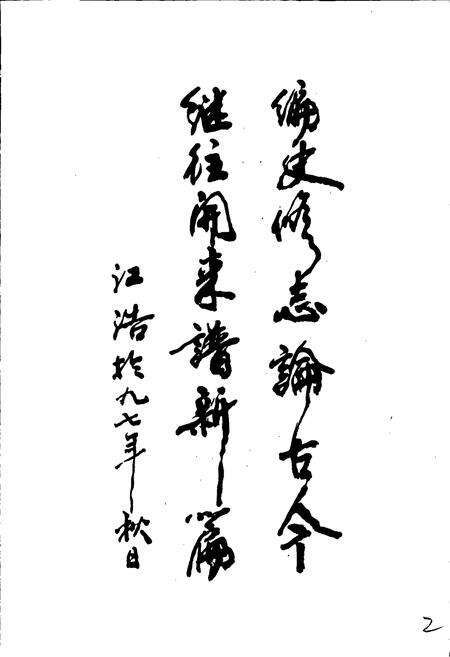 编史修志論古今
继往開来譜新篇
江浩於九七年秋日
2